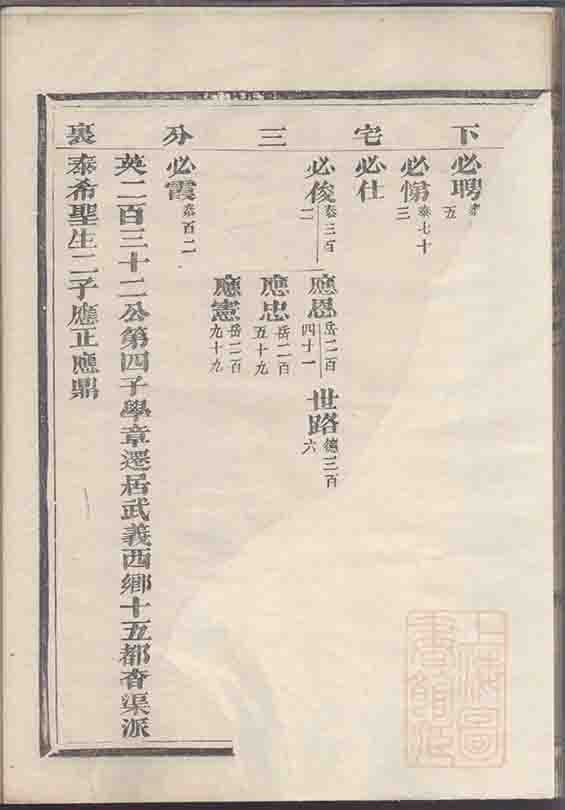 下 宅 三 分 裏
必聘 五
必悌 泰七十三
必仕
必俊 泰三百二
應恩 岳二百四十一
世路 德三百六
應忠 岳二百五十九
應憲 岳二百九十九
必霞 泰百二
英二百三十二公第四子學章遷居武義西鄉十五都杳渠派
泰希聖生二子應正應鼎
上海圖書館藏